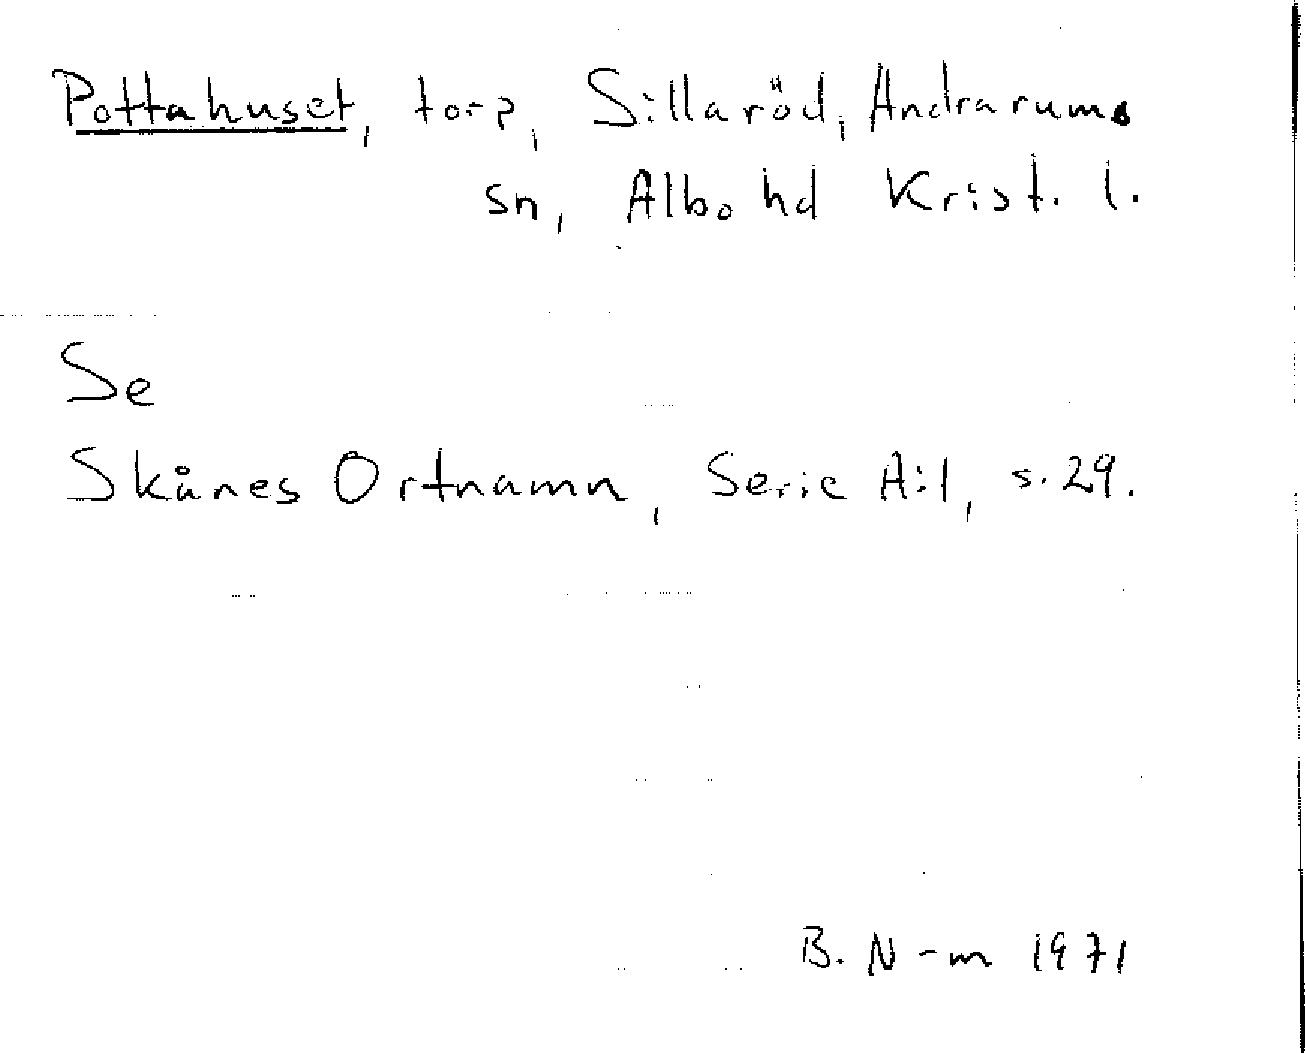 Pottahuset, torp, Sillaröd, Andrarums
sn, Albo hd Krist. l.
Se
Skånes Ortnamn, Serie A:1, s. 29.
B. N-m 1971